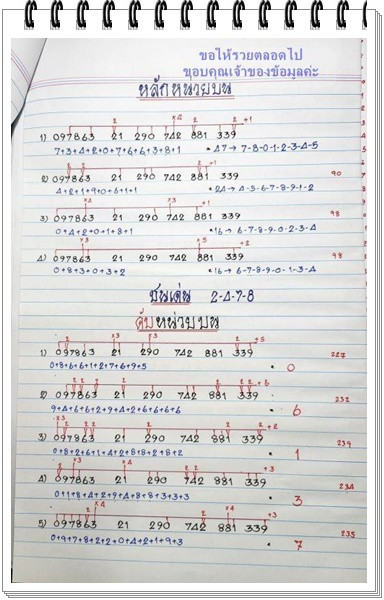 ขอให้รวยตลอดไป
ขอบคุณเจ้าของข้อมูลค่ะ
หลักหน่วยบน
2 x4 2 2 +1
1) 097863 21 290 742 881 339
7+3+4+2+0+7+6+6+3+8+1 = 47 → 7-8-0-1-2-3-4-5
2 2 +1
2) 097863 21 290 742 881 339 90
4+2+1+9+0+4+1+1 = 24 → 4-5-6-7-8-9-1-2
x4 x3 +1
3) 097863 21 290 742 881 339 98
0+4+2+0+1+8+1 = 16 → 6-7-8-9-0-2-3-4
x3 x5 +2
4) 097863 21 290 742 881 339 98
0+8+3+0+3+2 = 16 → 6-7-8-9-0-1-3-4
ชนเด่น 2-4-7-8
ดับหน่วยบน
x3 x3 2 +5
1) 097863 21 290 742 881 339 227
0+8+6+6+1+2+7+6+9+5 = 0
2 2 2 2 2 2 +6
2) 097863 21 290 742 881 339 232
9+4+6+6+2+9+4+2+6+6+6+6 = 6
x3 2 2 2 2 2 2 +2
3) 097863 21 290 742 881 339 239
0+8+2+6+1+4+2+8+8+2+8+2 = 1
2 x3 x4 2 2 +3
4) 097863 21 290 742 881 339 234
0+1+8+4+2+9+4+8+8+3+3+3 = 3
2 2 x4 2 x4 +3
5) 097863 21 290 742 881 339 235
0+9+7+8+2+2+0+4+2+1+9+3 = 7